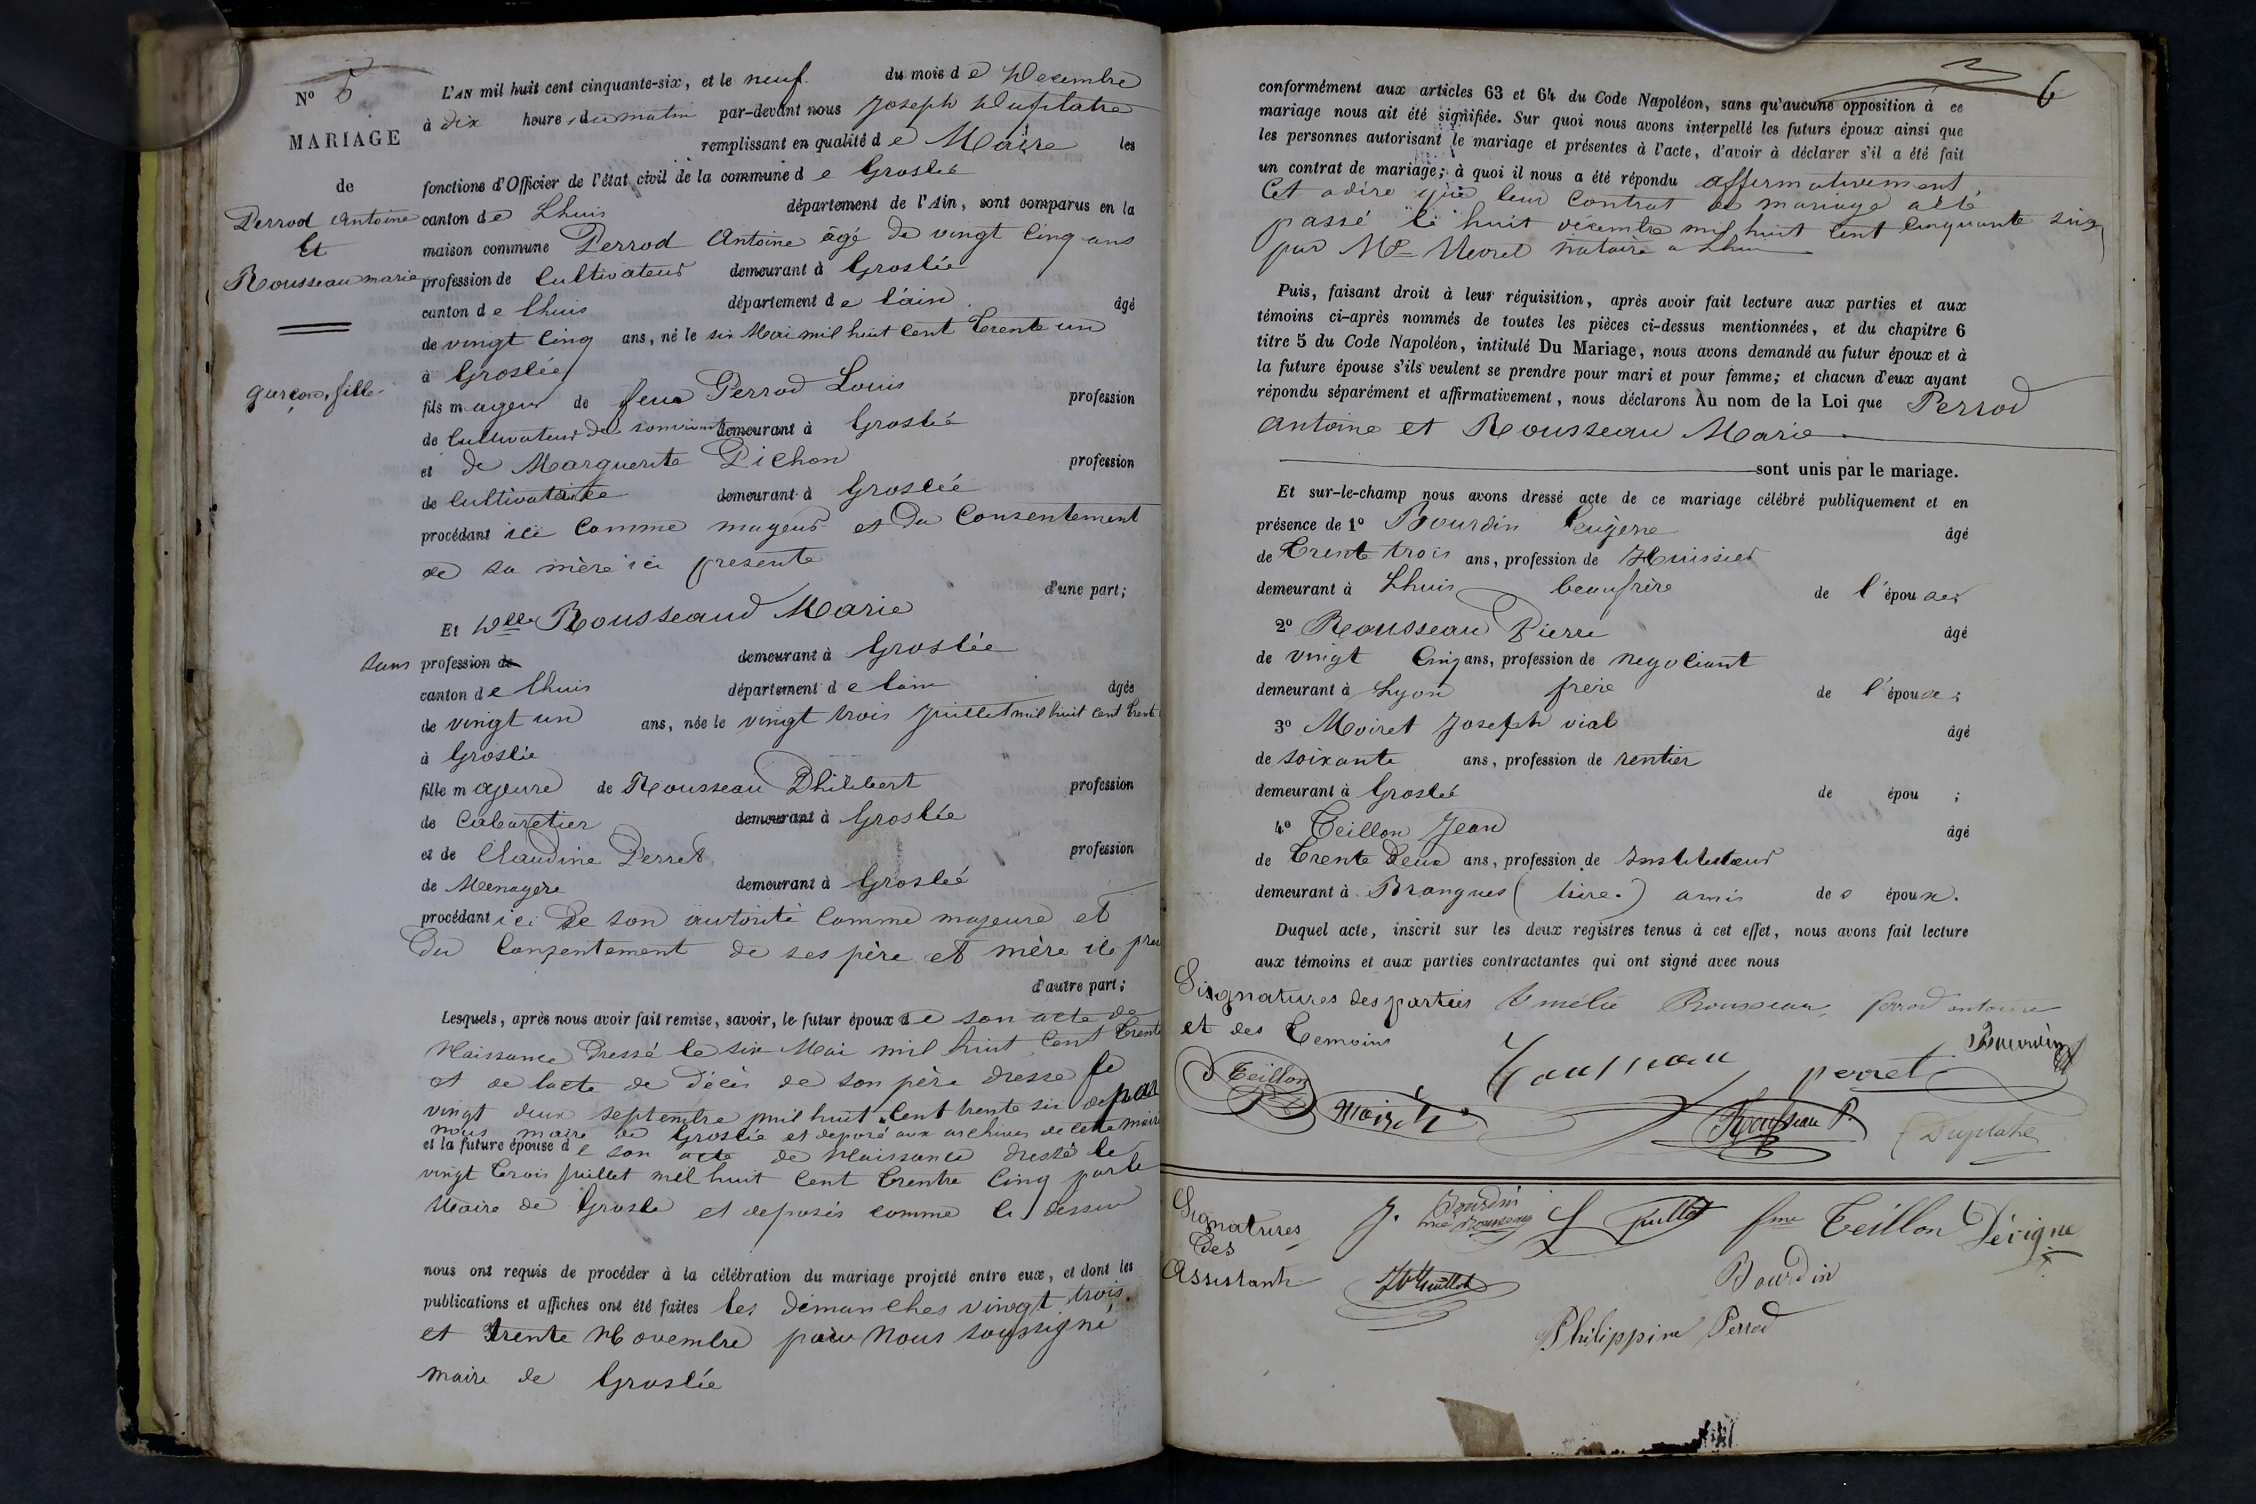 N° 5
MARIAGE
de
Perrod Antoine
Et
Rousseau marie
garçon, fille
L'AN mil huit cent cinquante-six, et le neuf du mois de Decembre
à dix heures du matin par-devant nous Joseph Duplatre
remplissant en qualité de Maire les
fonctions d'Officier de l'état civil de la commune de Groslée
canton de Lhuis département de l'Ain, sont comparus en la
maison commune Perrod Antoine âgé de vingt cinq ans
profession de Cultivateur demeurant à Groslée
canton de Lhuis département de l'ain âgé
de vingt cinq ans, né le six Mai mil huit cent trente un
à Groslée
fils majeur de feu Perrod Louis profession
de Cultivateur de son vivant demeurant à Groslée
et de Marguerite Pichon profession
de Cultivatrice demeurant à Groslée
procédant ici comme mageur et du Consentement
de sa mère ici presente
d'une part;
Et Dlle Rousseaud Marie
sans profession de demeurant à Groslée
canton de Lhuis département de lain âgée
de vingt un ans, née le vingt trois Juillet mil huit cent trente
à Groslée
fille majeure de Rousseau Philibert profession
de Cabaretier demeurant à Groslée
et de Claudine Perret profession
de Menagère demeurant à Groslée
procédant ici De son autorité comme majeure et
du Consentement de ses père et mère ici
d'autre part;
Lesquels, après nous avoir fait remise, savoir, le futur époux de son acte de
Naissance Dressé le six Mai mil huit Cent trente
et de lacte de décès de son père dresse le
vingt deux septembre mil huit Cent trente six par
nous maire de Groslée et deposé aux archives de cette mairie
et la future épouse de son acte de Naissance dressé le
vingt trois Juillet mil huit Cent trentre Cinq par le
Maire de Groslé et deposés comme ci dessus
nous ont requis de procéder à la célébration du mariage projeté entre eux, et dont les
publications et affiches ont été faites les dimanches vingt trois
et trente Novembre par Nous soussigné
maire de Groslée
6
conformément aux articles 63 et 64 du Code Napoléon, sans qu'aucune opposition à ce
mariage nous ait été signifiée. Sur quoi nous avons interpellé les futurs époux ainsi que
les personnes autorisant le mariage et présentes à l'acte, d'avoir à déclarer s'il a été fait
un contrat de mariage; à quoi il nous a été répondu affirmativement,
Cet a dire que leur Contrat de mariage a été
passé le huit décembre mil huit cent cinquante six
par Me notaire a Lhuis
Puis, faisant droit à leur réquisition, après avoir fait lecture aux parties et aux
témoins ci-après nommés de toutes les pièces ci-dessus mentionnées, et du chapitre 6
titre 5 du Code Napoléon, intitulé Du Mariage, nous avons demandé au futur époux et à
la future épouse s'ils veulent se prendre pour mari et pour femme; et chacun d'eux ayant
répondu séparément et affirmativement, nous déclarons Au nom de la Loi que Perrod
Antoine et Rousseau Marie
sont unis par le mariage.
Et sur-le-champ nous avons dressé acte de ce mariage célébré publiquement et en
présence de 1° Bourdin Eugène âgé
de trente trois ans, profession de Huissier
demeurant à Lhuis beaufrère de l'épouse;
2° Rousseau Pierre âgé
de vingt Cinq ans, profession de negociant
demeurant à Lyon frère de l'épouse;
3° Moiret Joseph vial âgé
de soixante ans, profession de rentier
demeurant à Groslée de épou ;
4° Teillon Jean âgé
de trente deux ans, profession de Instituteur
demeurant à Brangues (Isère.) amis des époux.
Duquel acte, inscrit sur les deux registres tenus à cet effet, nous avons fait lecture
aux témoins et aux parties contractantes qui ont signé avec nous
Signatures des parties Amélie Rousseau, perrod antoine
et des temoins
Teillon Moiret Rousseau perret Bourdin
Rousseau P. Duplatre
Signatures
des
Assistants
J. Bourdin
née Rousseau
fme Teillon Dérigne
Bourdin
Philippine Perrod